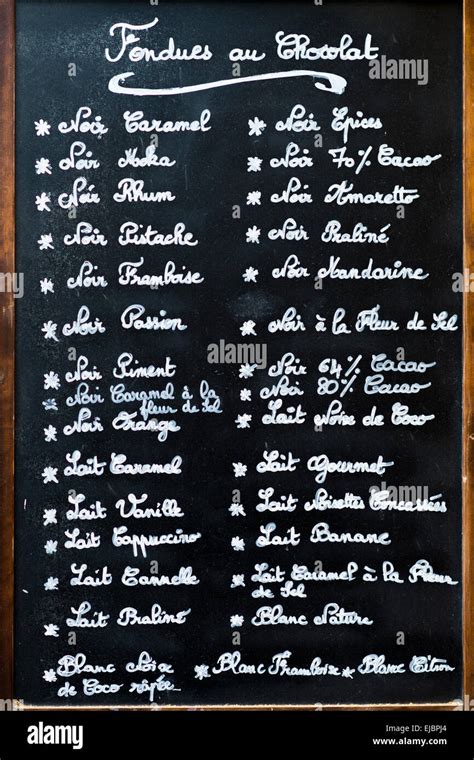 Fondues au Chocolat
* Noir Caramel
* Noir Moka
* Noir Rhum
* Noir Pistache
* Noir Framboise
* Noir Passion
* Noir Piment
* Noir Caramel à la
fleur de Sel
* Noir Orange
* Lait Caramel
* Lait Vanille
* Lait Cappuccino
* Lait Cannelle
* Lait Praliné
* Noir Epices
* Noir 70% Cacao
* Noir Amaretto
* Noir Praliné
* Noir Mandarine
* Noir à la Fleur de Sel
* Noir 64% Cacao
* Noir 80% Cacao
* Lait Noix de Coco
* Lait Gourmet
* Lait Noisettes Concassées
* Lait Banane
* Lait Caramel à la Fleur
de Sel
* Blanc Nature
* Blanc Noix
de Coco râpée
* Blanc Framboise
* Blanc Citron
alamy
Image ID: EJBPJ4
www.alamy.com